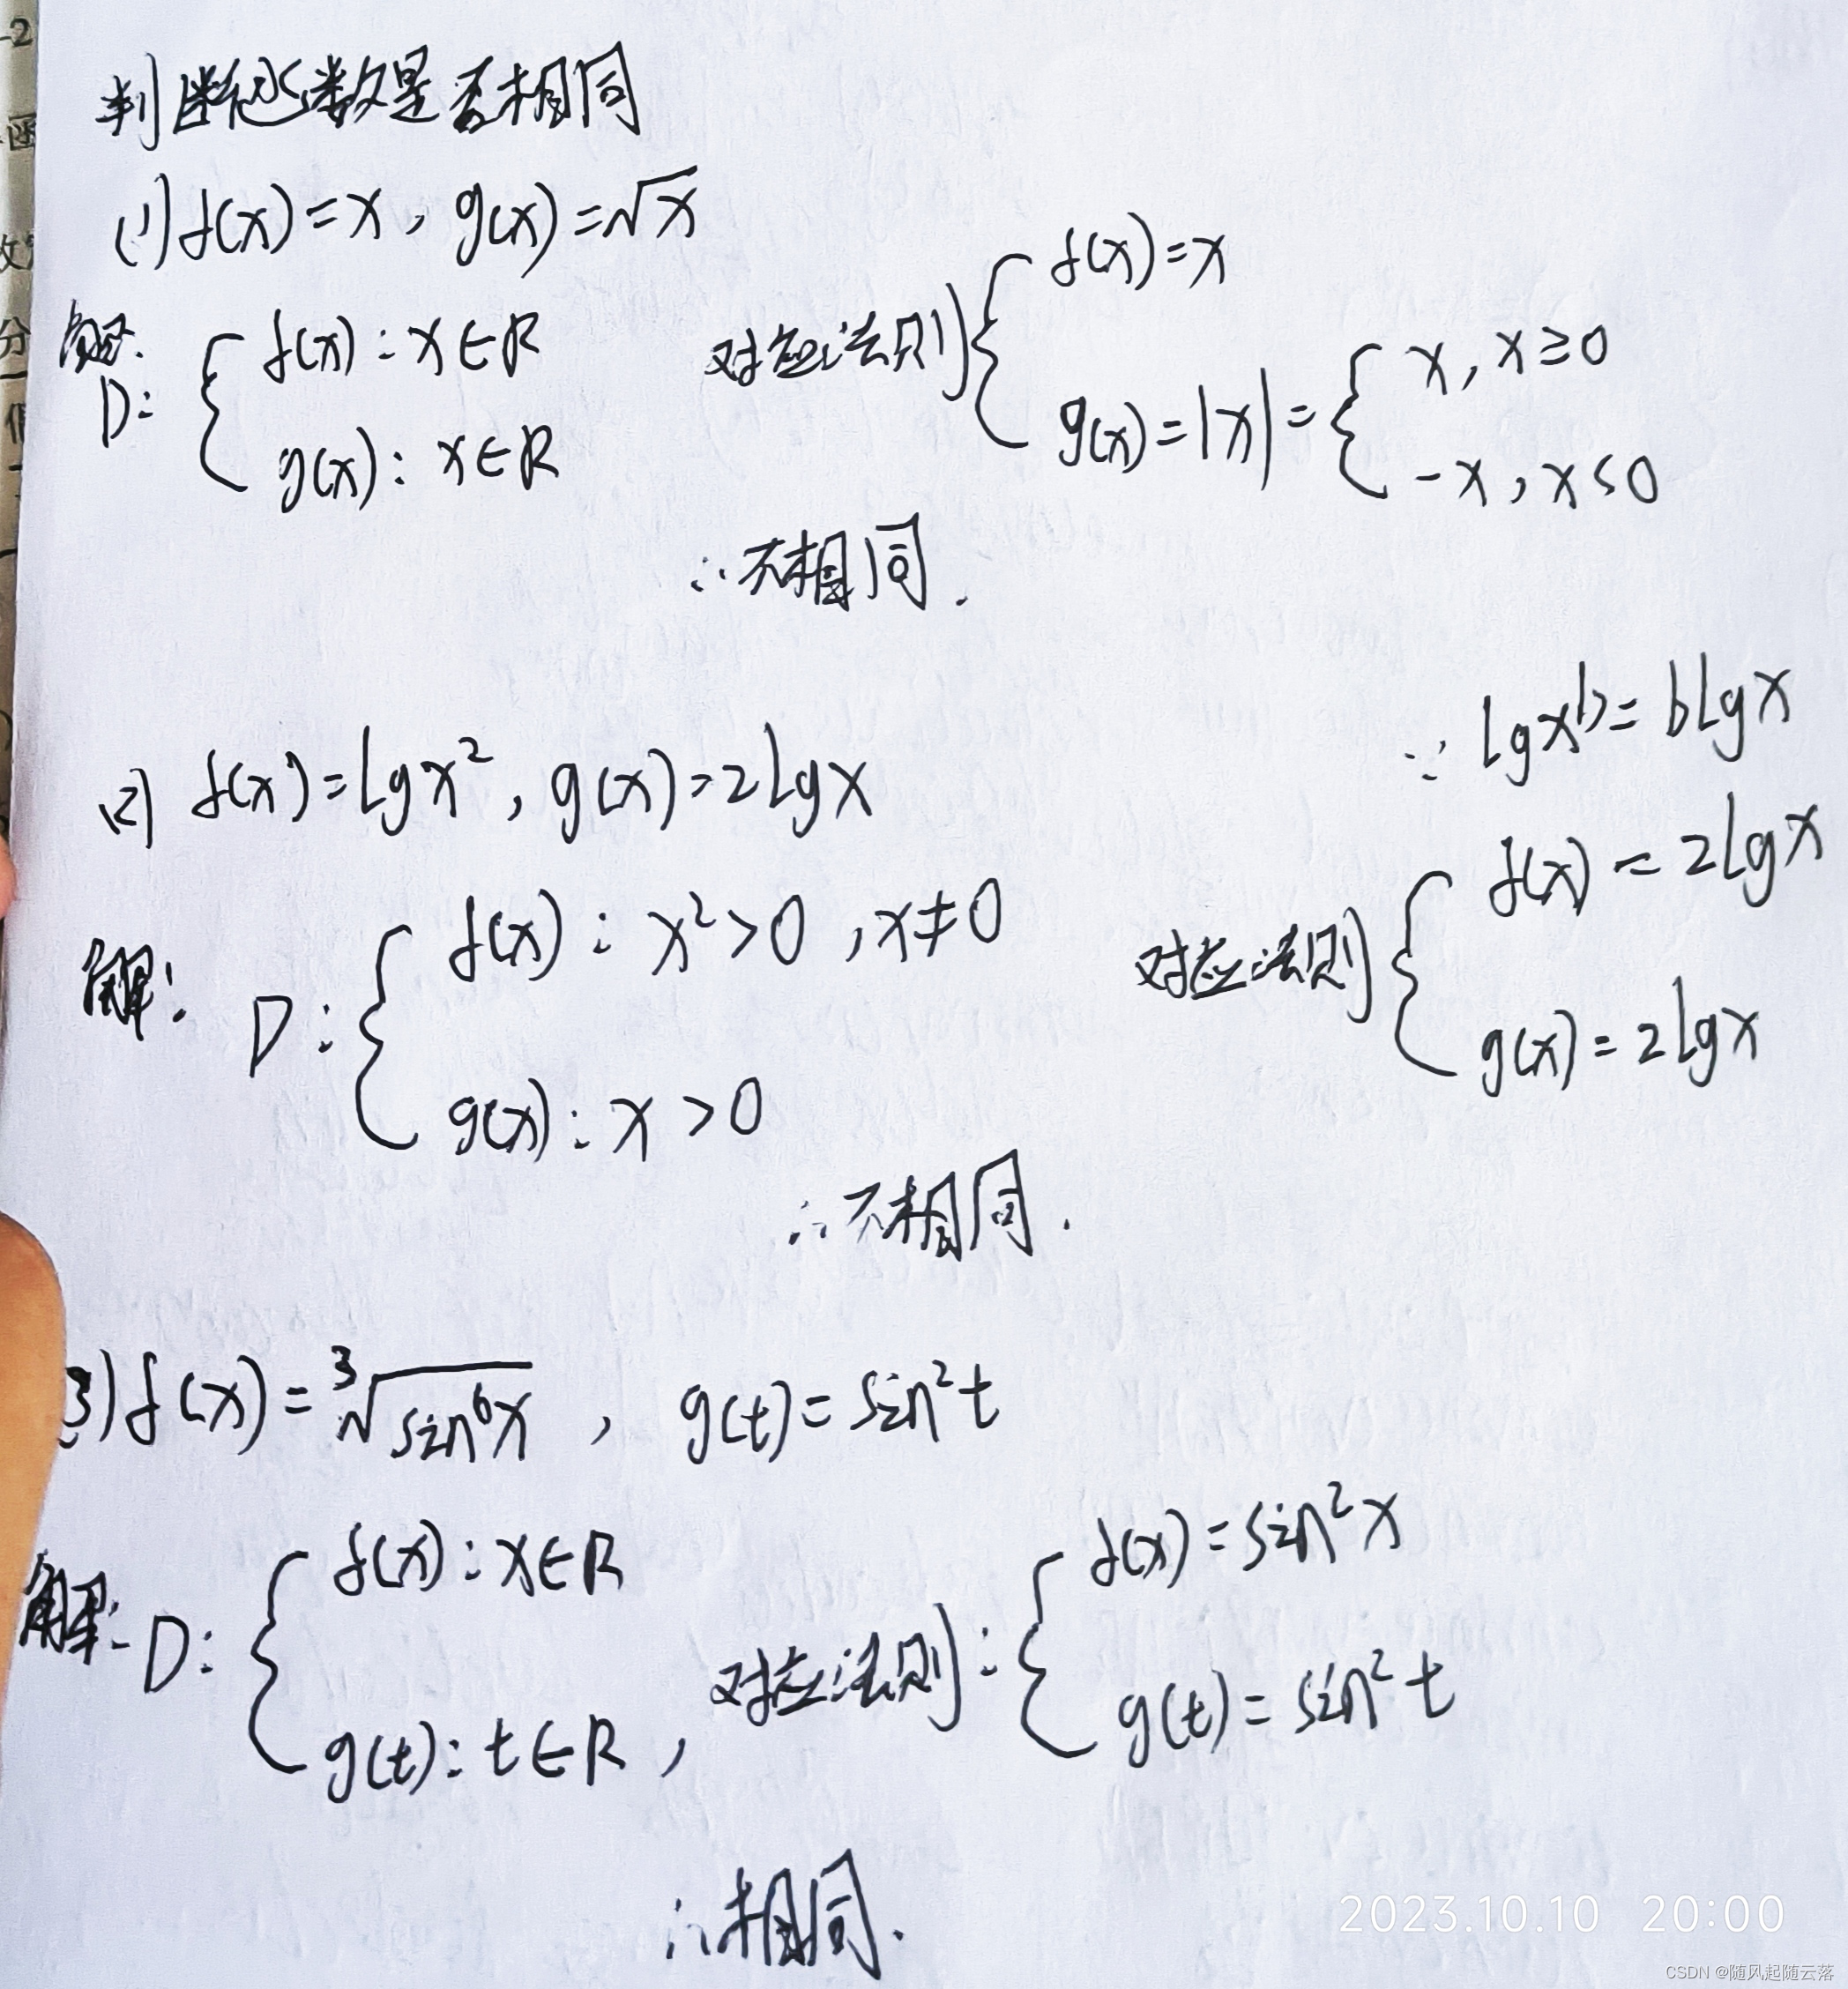 判断函数是否相同
(1) f(x)=x, g(x)=√x
解:
D: { f(x): x∈R
g(x): x∈R
对应法则 { f(x)=x
g(x)=|x|= { x, x≥0
-x, x<0
∴不相同.
(2) f(x)=lgx², g(x)=2lgx
∵ lgx^b=blgx
解: D: { f(x): x²>0, x≠0
g(x): x>0
对应法则 { f(x)=2lgx
g(x)=2lgx
∴不相同.
3) f(x)=³√sin⁶x, g(t)=sin²t
解: D: { f(x): x∈R
g(t): t∈R,
对应法则: { f(x)=sin²x
g(t)=sin²t
∴相同.
2023.10.10 20:00
CSDN @随风起随云落